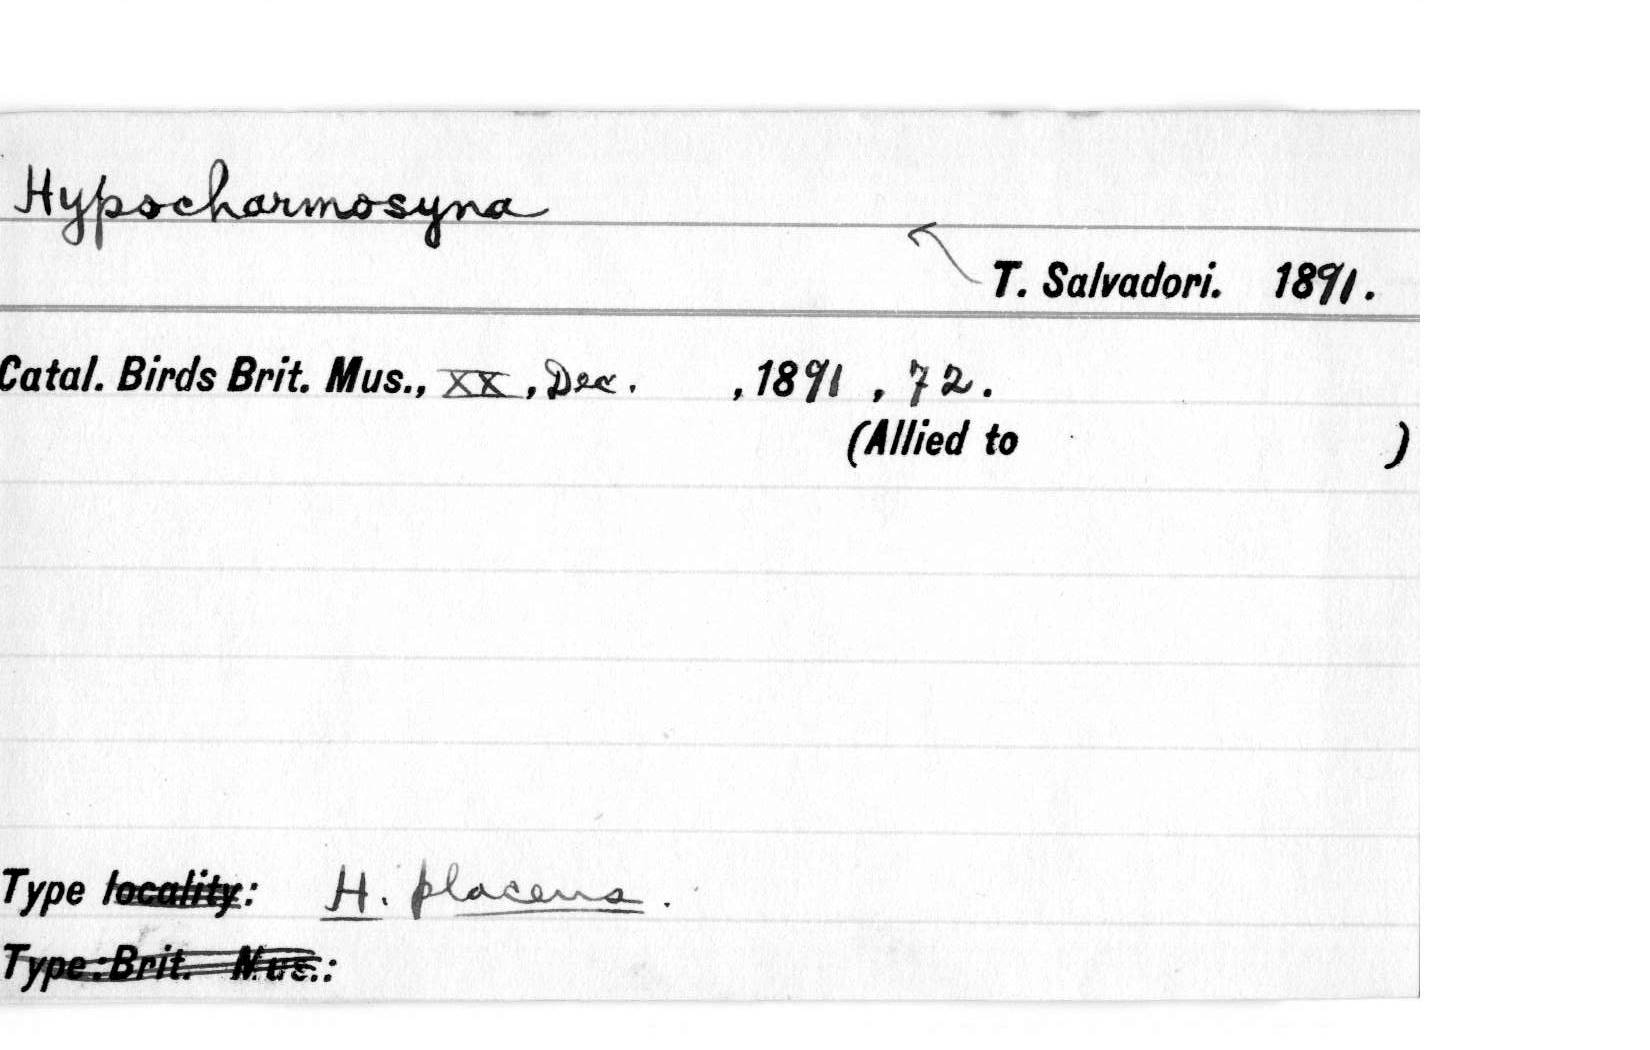 Hypocharmosyna
T. Salvadori. 1891.
Catal. Birds Brit. Mus., XX, Dec. , 1891 , 72.
(Allied to )
Type locality: H. placens.
Type: Brit. Mus.: